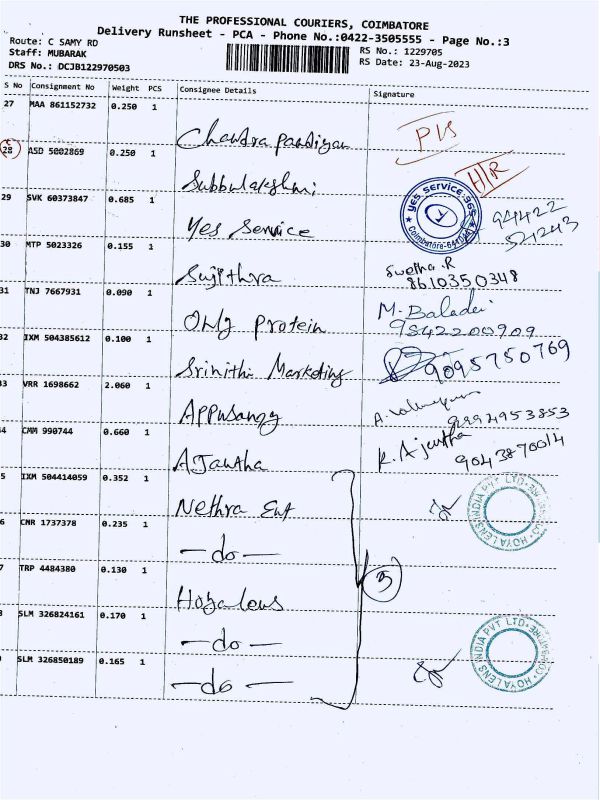 THE PROFESSIONAL COURIERS, COIMBATORE
Delivery Runsheet - PCA - Phone No.:0422-3505555 - Page No.:3
Route: C SAMY RD
RS No.: 1229705
Staff: MUBARAK
RS Date: 23-Aug-2023
DRS No.: DCJB122970503
S No Consignment No Weight PCS Consignee Details Signature
27 MAA 861152732 0.250 1
Chandra Pandiyan P/S
28 ASD 5002869 0.250 1
Subbulakshmi H/R
29 SVK 60373847 0.685 1
Yes Service
YES SERVICE 365
Coimbatore-641
94422
30 MTP 5023326 0.155 1
Sujithra Swetha.R
8610350348
31 TNJ 7667931 0.090 1
Only Protein M. Baladei
32 IXM 504385612 0.100 1
Srinithi Marketing 9095750769
33 VRR 1698662 2.060 1
Appusamy
4 CMM 990744 0.660 1
Ajantha K. Ajantha
9043870014
5 IXM 504414059 0.352 1
Nethra Ent
HOYA LENS INDIA PVT LTD
6 CNR 1737378 0.235 1
— do —
7 TRP 4484380 0.130 1
Hoya Lens
SLM 326824161 0.170 1
— do —
HOYA LENS INDIA PVT LTD
SLM 326850189 0.165 1
— do —